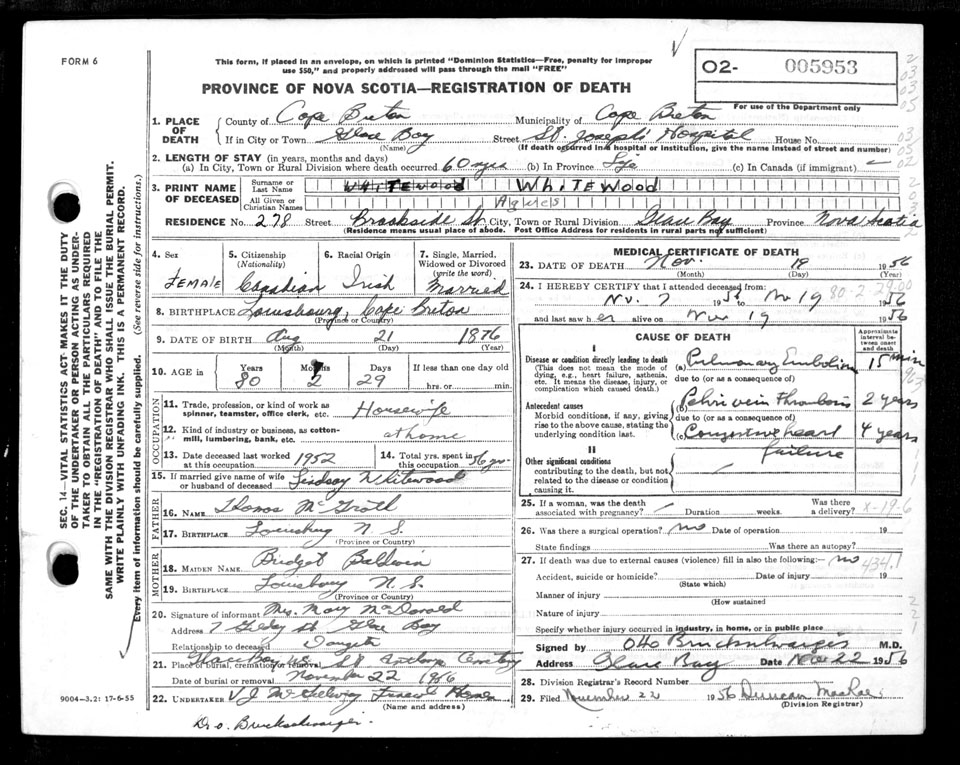 FORM 6
This form, if placed in an envelope, on which is printed "Dominion Statistics—Free, penalty for improper
use $50," and properly addressed will pass through the mail "FREE"
O2- 005953
For use of the Department only
PROVINCE OF NOVA SCOTIA—REGISTRATION OF DEATH
1. PLACE OF DEATH
County of Cape Breton Municipality of Cape Breton
If in City or Town Glace Bay Street St. Joseph's Hospital House No.
(Name) (If death occurred in a hospital or institution, give the name instead of street and number)
2. LENGTH OF STAY (in years, months and days)
(a) In City, Town or Rural Division where death occurred 60 yrs (b) In Province Life (c) In Canada (if immigrant) —
3. PRINT NAME OF DECEASED
Surname or Last Name WHITEWOOD WHITEWOOD
All Given or Christian Names Agnes
RESIDENCE No. 278 Street Brookside St. City, Town or Rural Division Glace Bay Province Nova Scotia
(Residence means usual place of abode. Post Office Address for residents in rural parts not sufficient)
4. Sex FEMALE
5. Citizenship (Nationality) Canadian
6. Racial Origin Irish
7. Single, Married, Widowed or Divorced (write the word) Married
8. BIRTHPLACE Louisbourg, Cape Breton
(Province or Country)
9. DATE OF BIRTH Aug 21 1876
(Month) (Day) (Year)
10. AGE in Years 80 Months 2 Days 29 If less than one day hrs. or min.
OCCUPATION
11. Trade, profession, or kind of work as spinner, teamster, office clerk, etc. Housewife
12. Kind of industry or business, as cotton-mill, lumbering, bank, etc. at home
13. Date deceased last worked at this occupation 1952
14. Total yrs. spent in this occupation 56 yrs
15. If married give name of wife or husband of deceased Lindsay Whitewood
FATHER
16. NAME Thomas McGrath
17. BIRTHPLACE Louisburg N. S.
(Province or Country)
MOTHER
18. MAIDEN NAME Bridget Baldwin
19. BIRTHPLACE Louisburg N. S.
(Province or Country)
20. Signature of informant Mrs. Mary McDonald
Address 7 St Glace Bay
Relationship to deceased
21. Place of burial, cremation or removal Glace Bay St Anthony Cemetery
Date of burial or removal November 22 1956
22. UNDERTAKER V J Funeral Home
(Name and address)
9004-3.2: 17-6-55
MEDICAL CERTIFICATE OF DEATH
23. DATE OF DEATH Nov. 19 1956
(Month) (Day) (Year)
24. I HEREBY CERTIFY that I attended deceased from:
Nov. 7 1956 to Nov 19 1956
80-2-29.00
and last saw her alive on Nov 19 1956
CAUSE OF DEATH
Approximate interval between onset and death
I
Disease or condition directly leading to death
(This does not mean the mode of dying, e.g., heart failure, asthenia, etc. It means the disease, injury, or complication which caused death.)
(a) Pulmonary Embolism 15 min
due to (or as a consequence of)
Antecedent causes
Morbid conditions, if any, giving rise to the above cause, stating the underlying condition last.
(b) Pelvic vein Thrombosis 2 years
due to (or as a consequence of)
(c) Congestive heart failure 4 years
II
Other significant conditions
contributing to the death, but not related to the disease or condition causing it.
25. If a woman, was the death associated with pregnancy? — Duration weeks. Was there a delivery? X-19-6
26. Was there a surgical operation? no Date of operation 19
State findings Was there an autopsy?
27. If death was due to external causes (violence) fill in also the following:— no 434.1
Accident, suicide or homicide? Date of injury 19
(State which)
Manner of injury
(How sustained)
Nature of injury
Specify whether injury occurred in industry, in home, or in public place
Signed by Otto M.D.
Address Glace Bay Date Nov 22 1956
28. Division Registrar's Record Number
29. Filed November 22 1956 Duncan MacRae
(Division Registrar)
SEC. 14—VITAL STATISTICS ACT—MAKES IT THE DUTY
OF THE UNDERTAKER OR PERSON ACTING AS UNDER-
TAKER TO OBTAIN ALL THE PARTICULARS REQUIRED
IN THE "REGISTRATION OF DEATH" AND TO FILE THE
SAME WITH THE DIVISION REGISTRAR WHO SHALL ISSUE THE BURIAL PERMIT.
WRITE PLAINLY WITH UNFADING INK. THIS IS A PERMANENT RECORD.
Every item of information should be carefully supplied. (See reverse side for instructions.)